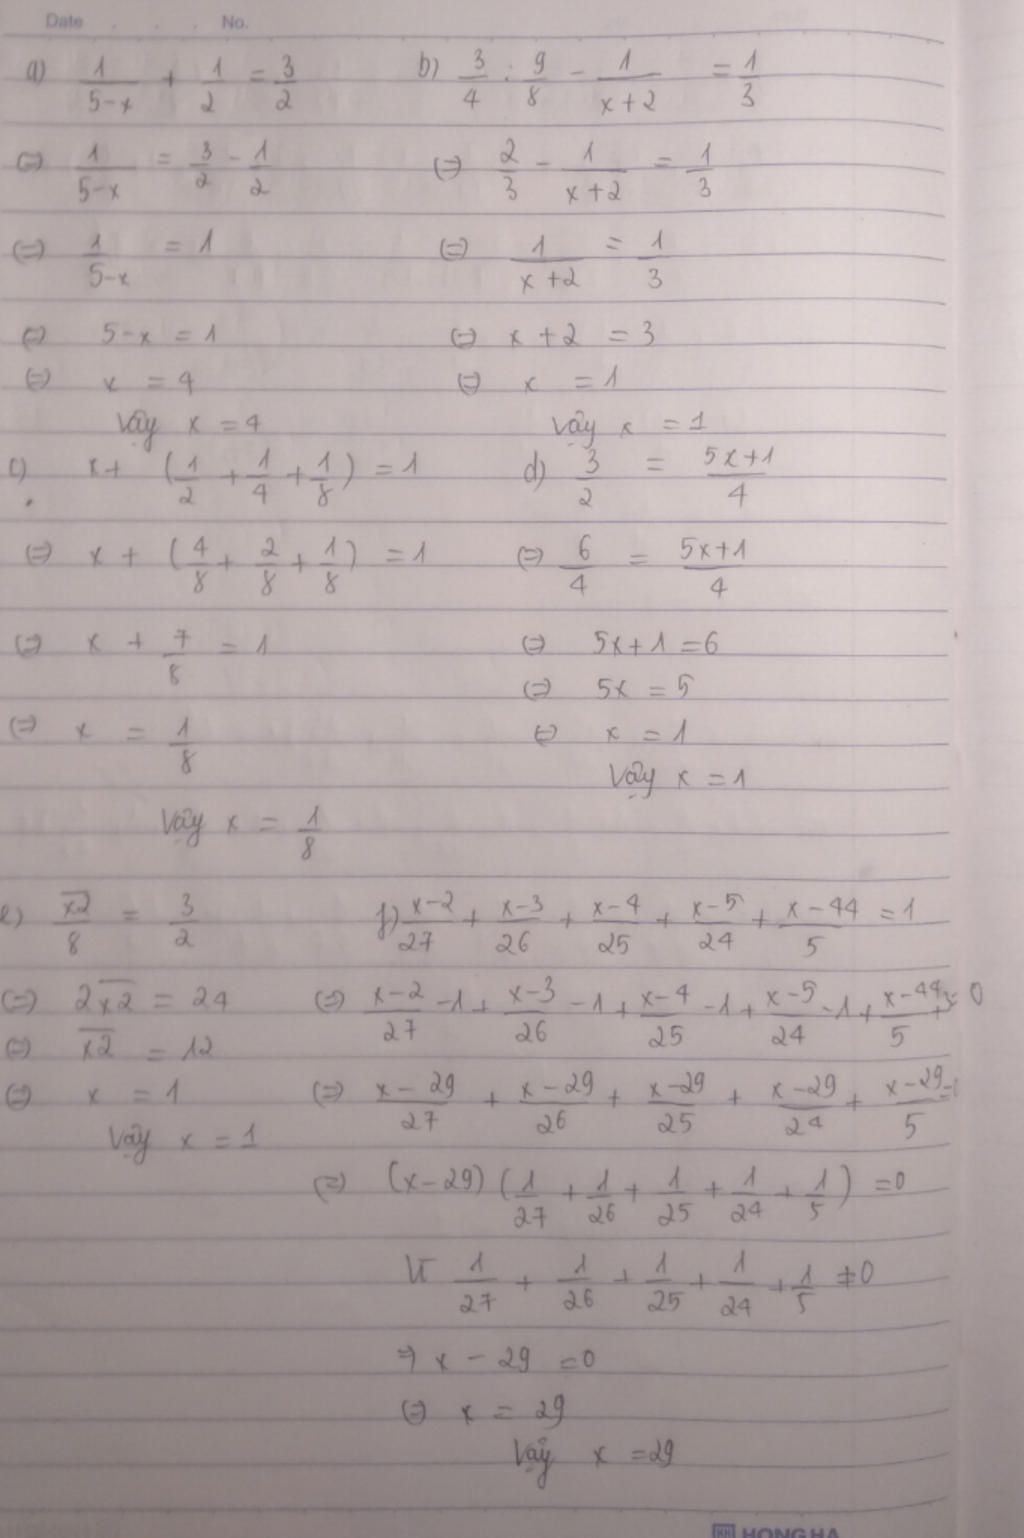 Date . . . No.
a) 1/(5-x) + 1/2 = 3/2
(=) 1/(5-x) = 3/2 - 1/2
(=) 1/(5-x) = 1
(=) 5-x = 1
(=) x = 4
Vậy x = 4
b) 3/4 : 9/8 - 1/(x+2) = 1/3
(=) 2/3 - 1/(x+2) = 1/3
(=) 1/(x+2) = 1/3
(=) x+2 = 3
(=) x = 1
Vậy x = 1
c) x + (1/2 + 1/4 + 1/8) = 1
(=) x + (4/8 + 2/8 + 1/8) = 1
(=) x + 7/8 = 1
(=) x = 1/8
Vậy x = 1/8
d) 3/2 = (5x+1)/4
(=) 6/4 = (5x+1)/4
(=) 5x+1 = 6
(=) 5x = 5
(=) x = 1
Vậy x = 1
e) x̅2̅/8 = 3/2
(=) 2x̅2̅ = 24
(=) x̅2̅ = 12
(=) x = 1
Vậy x = 1
f) (x-2)/27 + (x-3)/26 + (x-4)/25 + (x-5)/24 + (x-44)/5 = 1
(=) (x-2)/27 -1 + (x-3)/26 -1 + (x-4)/25 -1 + (x-5)/24 -1 + (x-44)/5 +3 = 0
(=) (x-29)/27 + (x-29)/26 + (x-29)/25 + (x-29)/24 + (x-29)/5 =
(=) (x-29)(1/27 + 1/26 + 1/25 + 1/24 + 1/5) = 0
Vì 1/27 + 1/26 + 1/25 + 1/24 + 1/5 ≠ 0
=> x - 29 = 0
(=) x = 29
Vậy x = 29
HH HONG HA